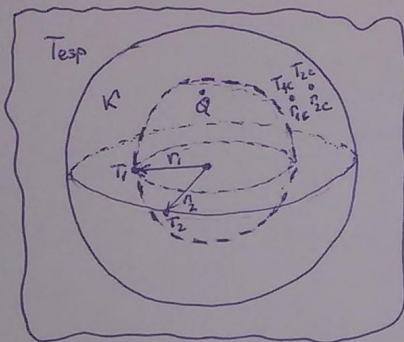 Tesp
K
Q̇
T1c T2c
r1c r2c
T1 r1
r2
T2